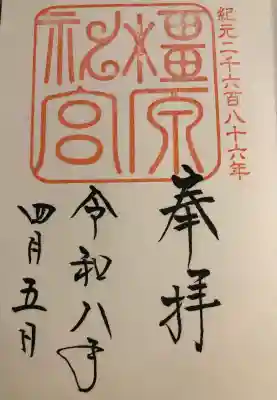 紀元二千六百八十六年
橿原
神宮
奉拝
令和八年
四月五日